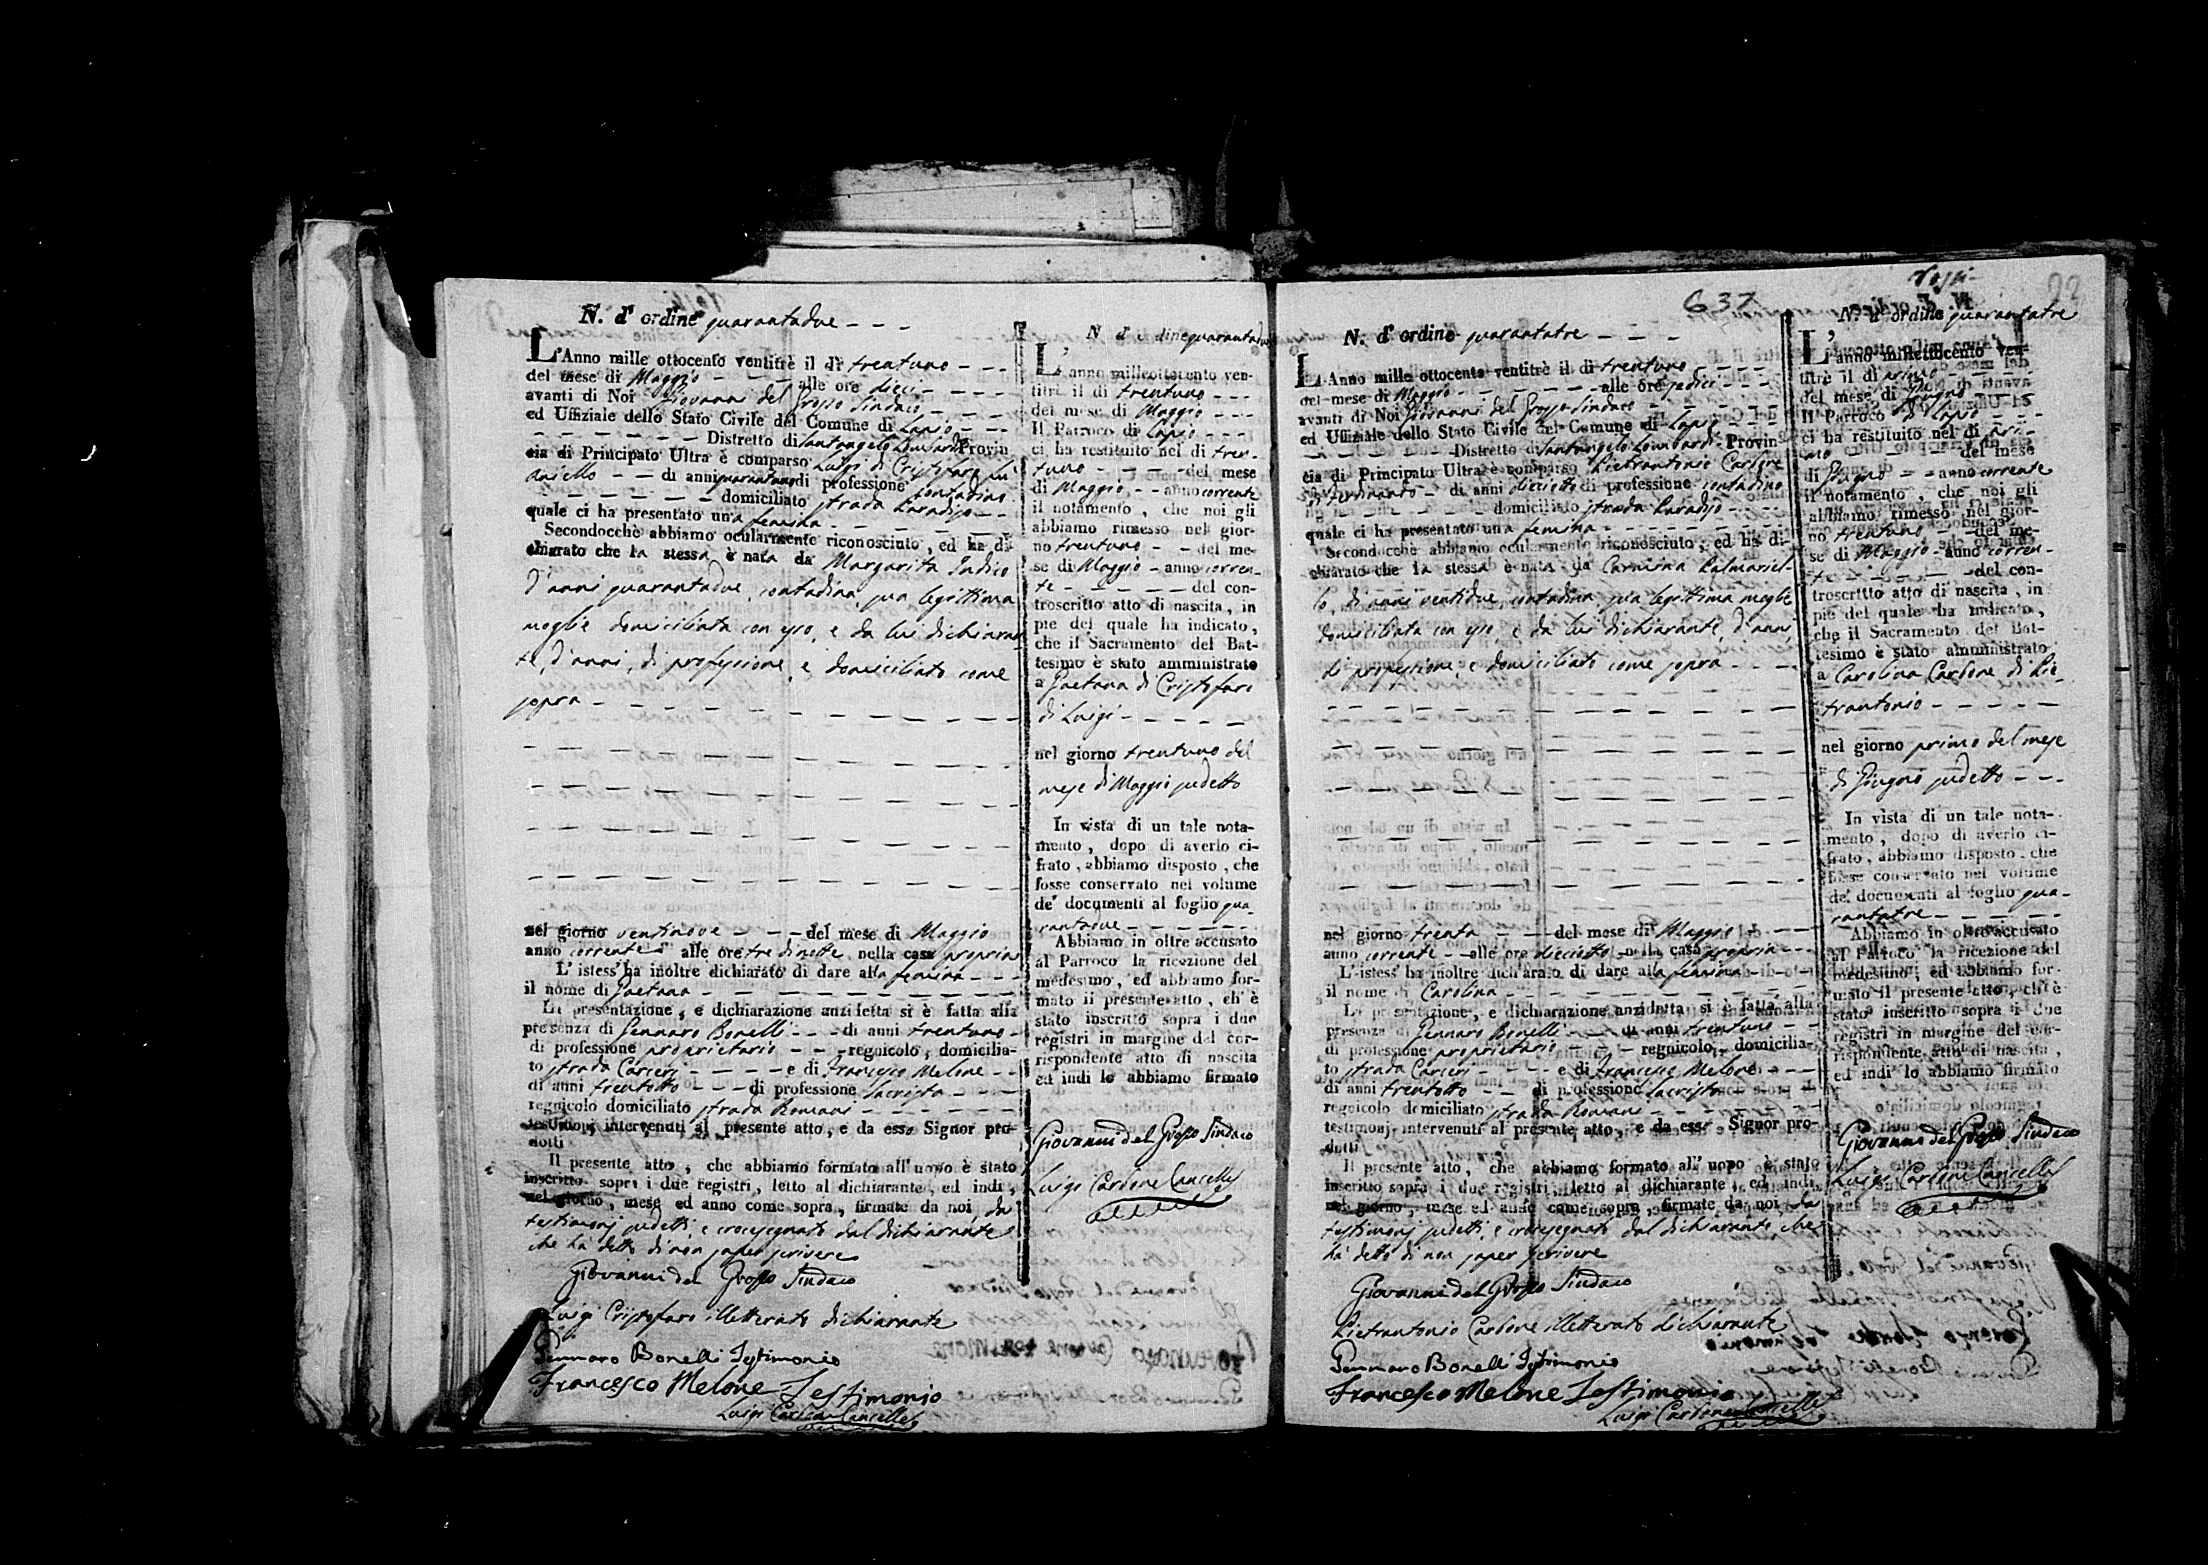 N. d' ordine quarantadue
L'Anno mille ottocento ventitrè il di trentuno
del mese di Maggio alle ore dieci
avanti di Noi Giovanni del Grosso Sindaco
ed Uffiziale dello Stato Civile del Comune di Lapio
Distretto di Santangelo Lombardi Provin
cia di Principato Ultra è comparso Luigi di Cristofaro fu
Aniello di anni quarantuno di professione contadino
domiciliato strada Paradiso
quale ci ha presentato una femina
Secondocchè abbiamo ocularmente riconosciuto, ed ha di
chiarato che la stessa è nata da Margarita Indico
d'anni quarantadue, contadina sua legittima
moglie domiciliata con esso, e da lui dichiaran
te, d'anni, di professione, e domiciliato come
sopra
nel giorno ventinove del mese di Maggio
anno corrente alle ore tre di notte nella casa propria
L'istess' ha inoltre dichiarato di dare alla femina
il nome di Gaetana
La presentazione, e dichiarazione anzidetta si è fatta alla
presenza di Gennaro Bonelli di anni trentuno
di professione proprietario regnicolo, domicilia-
to strada Carceri e di Francesco Melone
di anni trentotto di professione sacrista
regnicolo domiciliato strada Romani
testimonj intervenuti al presente atto, e da esso Signor pro-
dotti
Il presente atto, che abbiamo formato all' uopo è stato
inscritto sopra i due registri, letto al dichiarante, ed indi,
nel giorno, mese ed anno come sopra, firmato da noi, da
testimonj sudetti, e crocesegnato dal dichiarante
che ha detto di non saper scrivere
Giovanni del Grosso Sindaco
Luigi Cristofaro illetterato dichiarante
Gennaro Bonelli Testimonio
Francesco Melone Testimonio
Luigi Carbone Cancelle
N. d' ordine quarantadue
L'anno milleottocento ven-
titrè il di trentuno
del mese di Maggio
Il Parroco di Lapio
ci ha restituito nel di tren-
tuno del mese
di Maggio anno corrente
il notamento, che noi gli
abbiamo rimesso nel gior-
no trentuno del me-
se di Maggio anno corren-
te del con-
troscritto atto di nascita, in
pie del quale ha indicato,
che il Sacramento del Bat-
tesimo è stato amministrato
a Gaetana di Cristofaro
di Luigi
nel giorno trentuno del
mese di Maggio sudetto
In vista di un tale nota-
mento, dopo di averlo ci-
frato, abbiamo disposto, che
fosse conservato nel volume
de' documenti al foglio qua-
rantadue
Abbiamo in oltre accusato
al Parroco la ricezione del
medesimo, ed abbiamo for-
mato il presente atto, ch' è
stato inscritto sopra i due
registri in margine del cor-
rispondente atto di nascita
ed indi lo abbiamo firmato
Giovanni del Grosso Sindaco
Luigi Carbone Cancelle
637
N. d' ordine quarantatre
L'Anno mille ottocento ventitrè il di trentuno
del mese di Maggio alle ore sedici
avanti di Noi Giovanni del Grosso Sindaco
ed Uffiziale dello Stato Civile del Comune di Lapio
Distretto di Santangelo Lombardi Provin
cia di Principato Ultra è comparso Pietrantonio Carbone
di Ferdinando di anni diciotto di professione contadino
domiciliato strada Paradiso
quale ci ha presentato una femina
Secondocchè abbiamo ocularmente riconosciuto, ed ha di-
chiarato che la stessa è nata da Carmina Palmariel-
lo, di anni ventidue, contadina sua legittima moglie
domiciliata con esso, e da lui dichiarante, d'anni,
di professione, e domiciliato come sopra
nel giorno trenta del mese di Maggio
anno corrente alle ore diciotto nella casa propria
L'istess' ha inoltre dichiarato di dare alla femina
il nome di Carolina
La presentazione, e dichiarazione anzidetta si è fatta alla
presenza di Gennaro Bonelli di anni trentuno
di professione proprietario regnicolo, domicilia-
to strada Carceri e di Francesco Melone
di anni trentotto di professione sacrista
regnicolo domiciliato strada Romani
testimonj intervenuti al presente atto, e da esso Signor pro-
dotti
Il presente atto, che abbiamo formato all' uopo è stato
inscritto sopra i due registri, letto al dichiarante, ed indi,
nel giorno, mese ed anno come sopra, firmato da noi, da
testimonj sudetti, e crocesegnato dal dichiarante che
ha detto di non saper scrivere
Giovanni del Grosso Sindaco
Pietrantonio Carbone illetterato dichiarante
Gennaro Bonelli Testimonio
Francesco Melone Testimonio
Luigi Carbone Cancelle
N. d' ordine quarantatre
L'anno milleottocento ven-
titrè il di primo
del mese di Giugno
Il Parroco di Lapio
ci ha restituito nel di pri-
mo del mese
di Giugno anno corrente
il notamento, che noi gli
abbiamo rimesso nel gior-
no trentuno del me-
se di Maggio anno corren-
te del con-
troscritto atto di nascita, in
pie del quale ha indicato,
che il Sacramento del Bat-
tesimo è stato amministrato
a Carolina Carbone di Pie-
trantonio
nel giorno primo del mese
di Giugno sudetto
In vista di un tale nota-
mento, dopo di averlo ci-
frato, abbiamo disposto, che
fosse conservato nel volume
de' documenti al foglio qua-
rantatre
Abbiamo in oltre accusato
al Parroco la ricezione del
medesimo, ed abbiamo for-
mato il presente atto, ch' è
stato inscritto sopra i due
registri in margine del cor-
rispondente atto di nascita,
ed indi lo abbiamo firmato
Giovanni del Grosso Sindaco
Luigi Carbone Cancelle